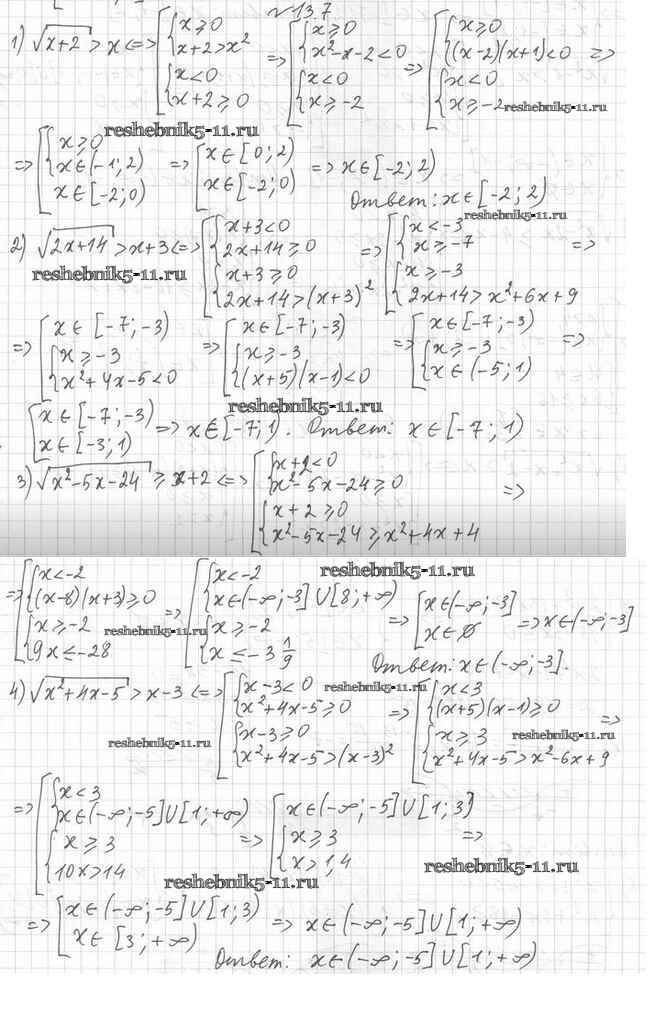 № 137
1) √(x+2) > x <=> [ { x ≥ 0 ; x+2 > x² ; { x < 0 ; x+2 ≥ 0 => [ { x ≥ 0 ; x²-x-2 < 0 ; { x < 0 ; x ≥ -2 => [ { x ≥ 0 ; (x-2)(x+1) < 0 ; { x < 0 ; x ≥ -2 =>
reshebnik5-11.ru
reshebnik5-11.ru
=> [ { x ≥ 0 ; x∈(-1; 2) ; x∈[-2; 0) => [ x∈[0; 2) ; x∈[-2; 0) => x∈[-2; 2)
Ответ: x∈[-2; 2)
reshebnik5-11.ru
2) √(2x+14) > x+3 <=> [ { x+3 < 0 ; 2x+14 ≥ 0 ; { x+3 ≥ 0 ; 2x+14 > (x+3)² => [ { x < -3 ; x ≥ -7 ; { x ≥ -3 ; 2x+14 > x²+6x+9 =>
reshebnik5-11.ru
=> [ x∈[-7; -3) ; { x ≥ -3 ; x²+4x-5 < 0 => [ x∈[-7; -3) ; { x ≥ -3 ; (x+5)(x-1) < 0 => [ x∈[-7; -3) ; { x ≥ -3 ; x∈(-5; 1) =>
reshebnik5-11.ru
[ x∈[-7; -3) ; x∈[-3; 1) => x∈[-7; 1). Ответ: x∈[-7; 1)
3) √(x²-5x-24) ≥ x+2 <=> [ { x+2 < 0 ; x²-5x-24 ≥ 0 ; { x+2 ≥ 0 ; x²-5x-24 ≥ x²+4x+4 =>
reshebnik5-11.ru
=> [ { x < -2 ; (x-8)(x+3) ≥ 0 ; { x ≥ -2 ; 9x ≤ -28 => [ { x < -2 ; x∈(-∞; -3] ∪ [8; +∞) ; { x ≥ -2 ; x ≤ -3 1/9 => [ x∈(-∞; -3] ; x∈∅ => x∈(-∞; -3]
reshebnik5-11.ru
Ответ: x∈(-∞; -3].
4) √(x²+4x-5) > x-3 <=> [ { x-3 < 0 ; x²+4x-5 ≥ 0 ; { x-3 ≥ 0 ; x²+4x-5 > (x-3)² => [ { x < 3 ; (x+5)(x-1) ≥ 0 ; { x ≥ 3 ; x²+4x-5 > x²-6x+9 =>
reshebnik5-11.ru
reshebnik5-11.ru
reshebnik5-11.ru
=> [ { x < 3 ; x∈(-∞; -5] ∪ [1; +∞) ; { x ≥ 3 ; 10x > 14 => [ x∈(-∞; -5] ∪ [1; 3) ; { x ≥ 3 ; x > 1,4 =>
reshebnik5-11.ru
reshebnik5-11.ru
=> [ x∈(-∞; -5] ∪ [1; 3) ; x∈[3; +∞) => x∈(-∞; -5] ∪ [1; +∞)
Ответ: x∈(-∞; -5] ∪ [1; +∞)